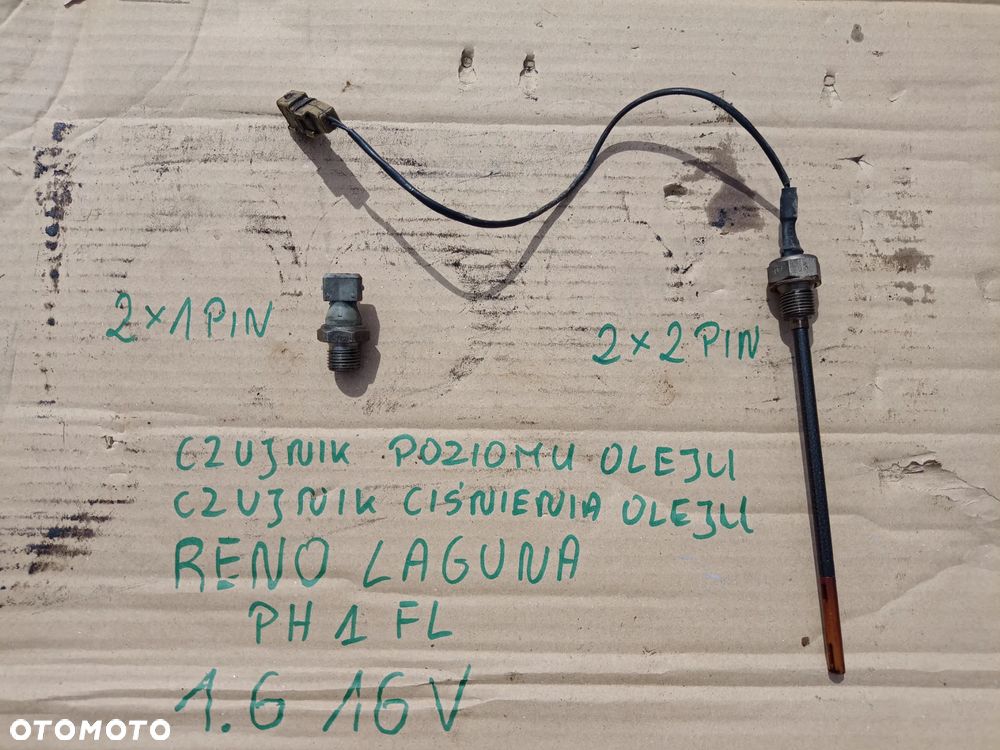 2 x 1 PIN
2 x 2 PIN
CZUJNIK POZIOMU OLEJU
CZUJNIK CIŚNIENIA OLEJU
RENO LAGUNA
PH 1 FL
1.6 16V
OTOMOTO